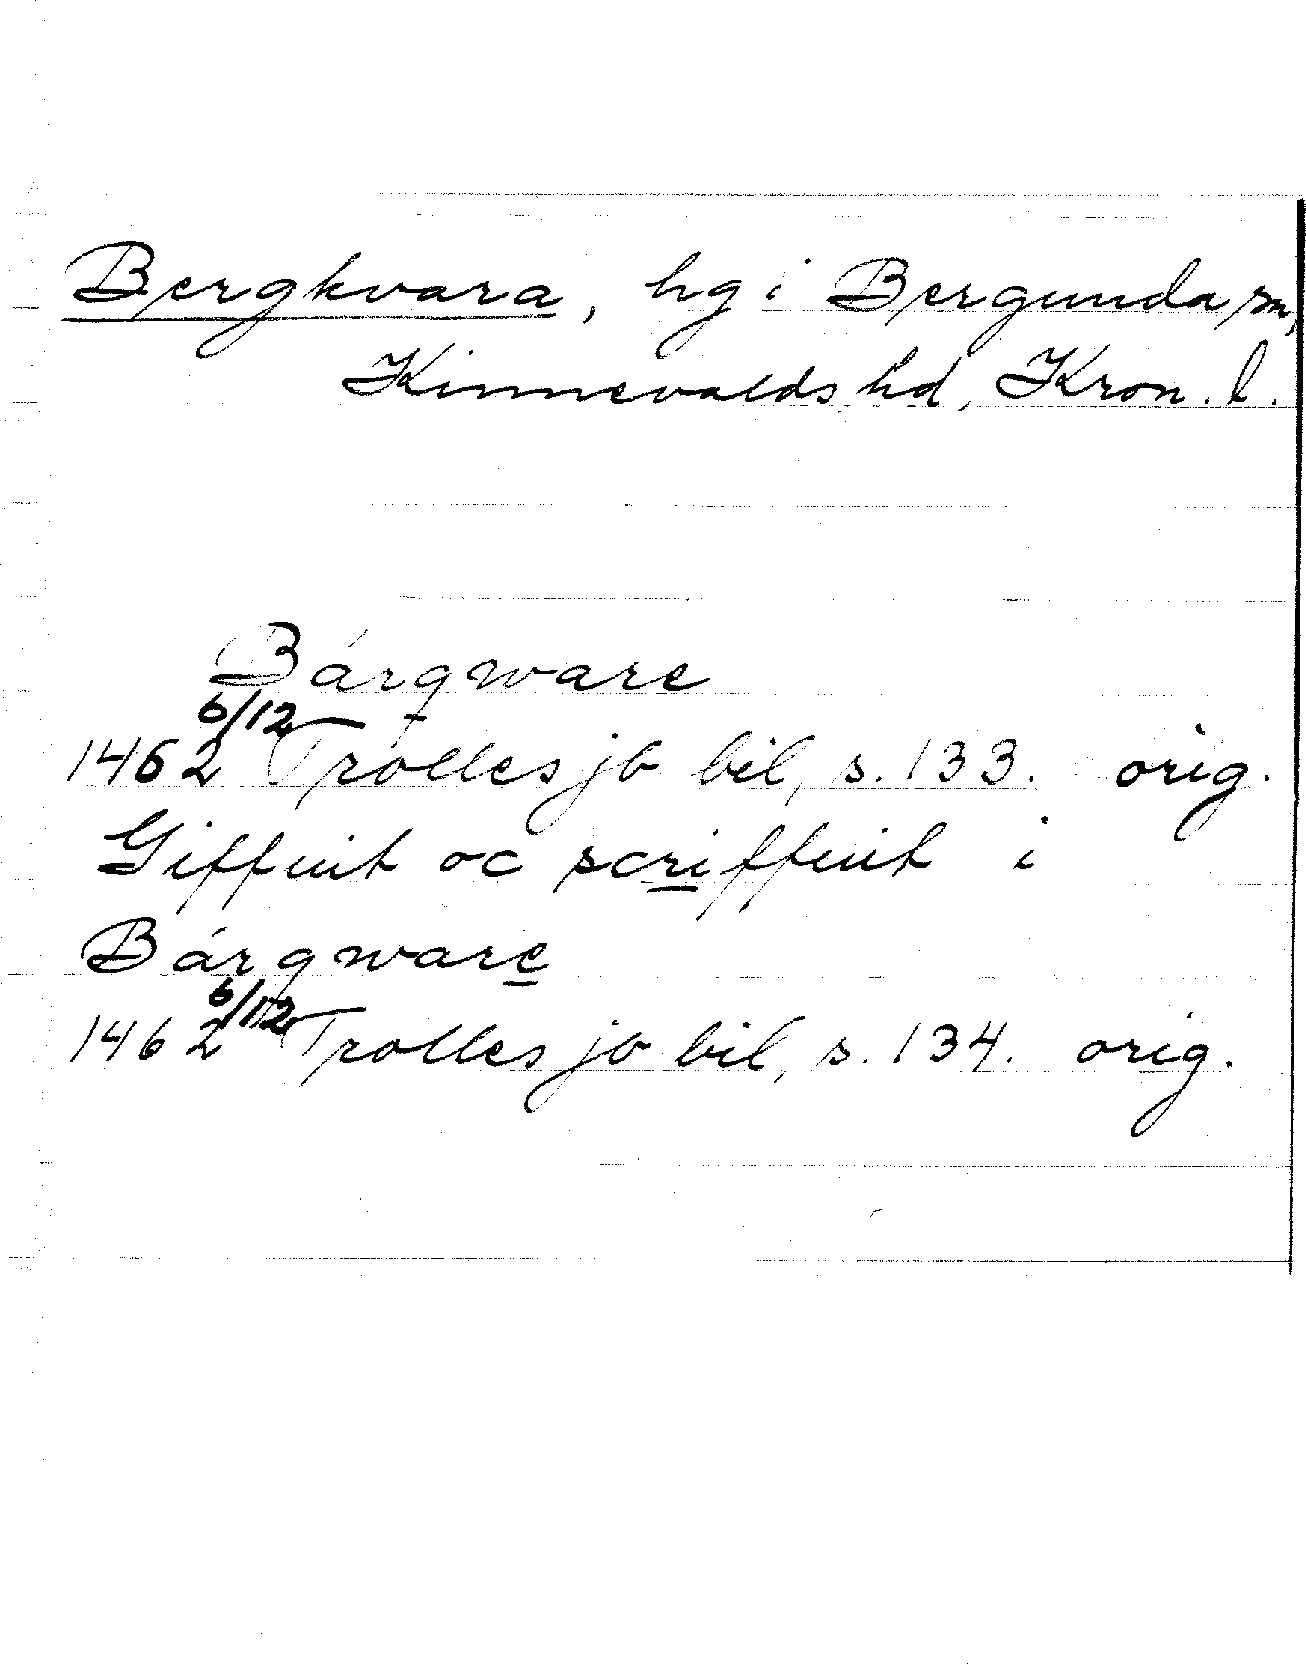 Bergkvara, hg i Bergunda sn,
Kinnevalds hd, Kron. l.
Bárqware
1462 6/12 Trolles jb bil, s. 133. orig.
Giffuit oc scriffuit i
Bárqware
1462 6/12 Trolles jb bil, s. 134. orig.